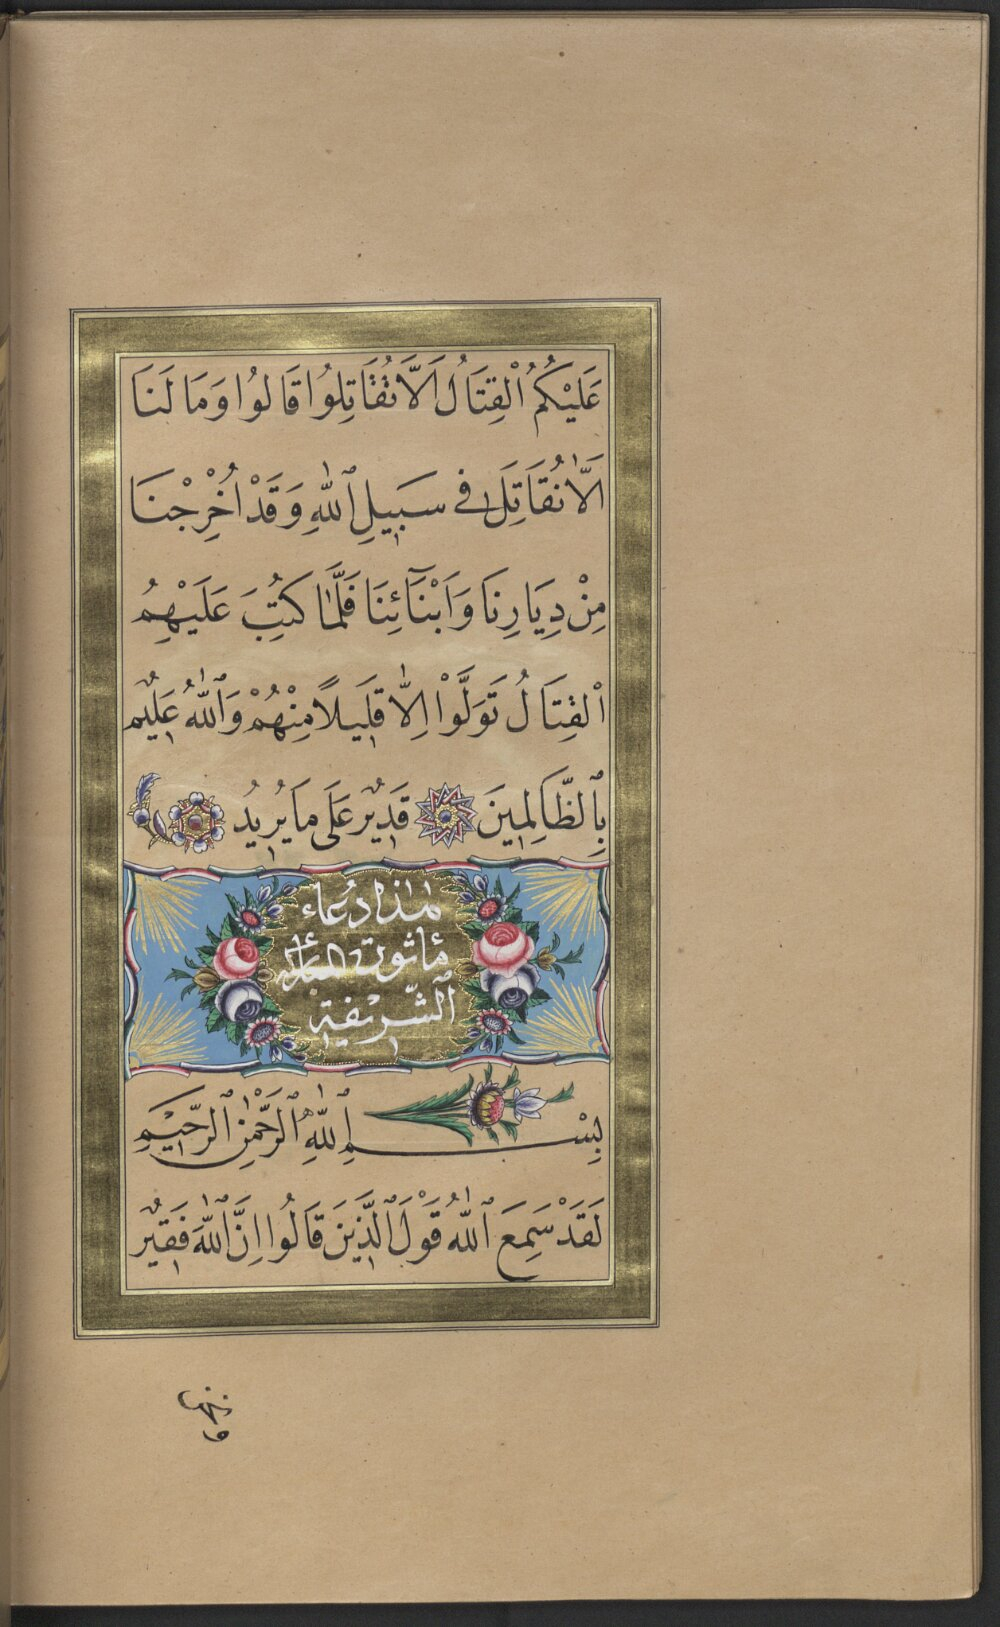 عَلَيْكُمُ الْقِتَالُ اَلَّا تُقَاتِلُوا قَالُوا وَمَا لَنَا
اَلَّا نُقَاتِلَ فِى سَبِيلِ اللّٰهِ وَقَدْ اُخْرِجْنَا
مِنْ دِيَارِنَا وَاَبْنَآئِنَا فَلَمَّا كُتِبَ عَلَيْهِمُ
الْقِتَالُ تَوَلَّوْا اِلَّا قَلِيلًا مِنْهُمْ وَاللّٰهُ عَلِيمٌ
بِالظَّالِمِينَ قَدِيرٌ عَلَى مَا يُرِيدُ
هٰذَا دُعَاء
مأثورة المباركة
الشّريفة
بِسْمِ اللّٰهِ الرَّحْمٰنِ الرَّحِيمِ
لَقَدْ سَمِعَ اللّٰهُ قَوْلَ الَّذِينَ قَالُوا اِنَّ اللّٰهَ فَقِيرٌ